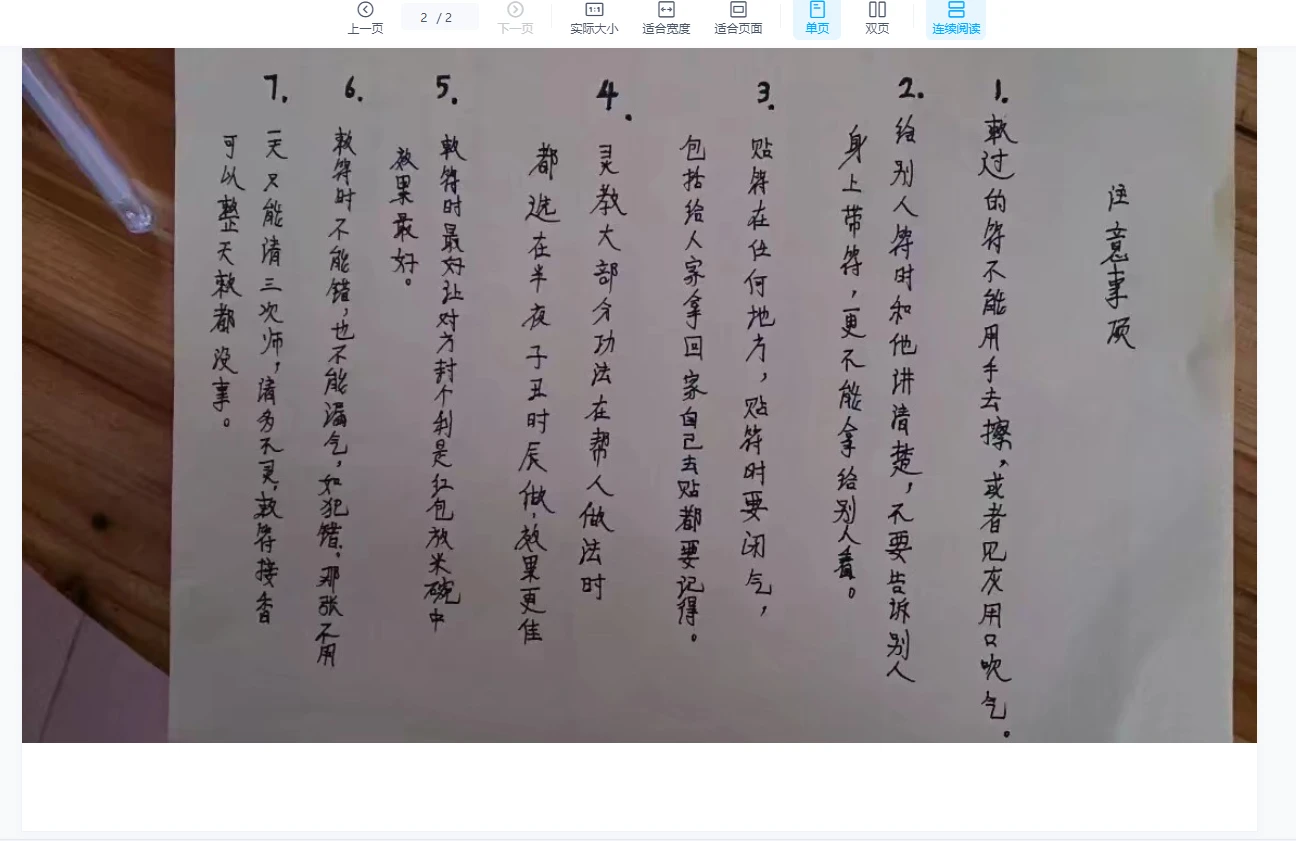 上一页
2 / 2
下一页
实际大小
适合宽度
适合页面
单页
双页
连续阅读
注意事项
1. 敕过的符不能用手去擦，或者见灰用口吹气。
2. 给别人符时和他讲清楚，不要告诉别人
身上带符，更不能拿给别人看。
3. 贴符在任何地方，贴符时要闭气，
包括给人家拿回家自己去贴都要记得。
4. 灵教大部分功法在帮人做法时
都选在半夜子丑时辰做，效果更佳
5. 敕符时最好让对方封个利是红包放米碗中
效果最好。
6. 敕符时不能错，也不能漏气，如犯错，那张不用
7. 一天只能请三次师，请多不灵，敕符接香
可以整天敕都没事。